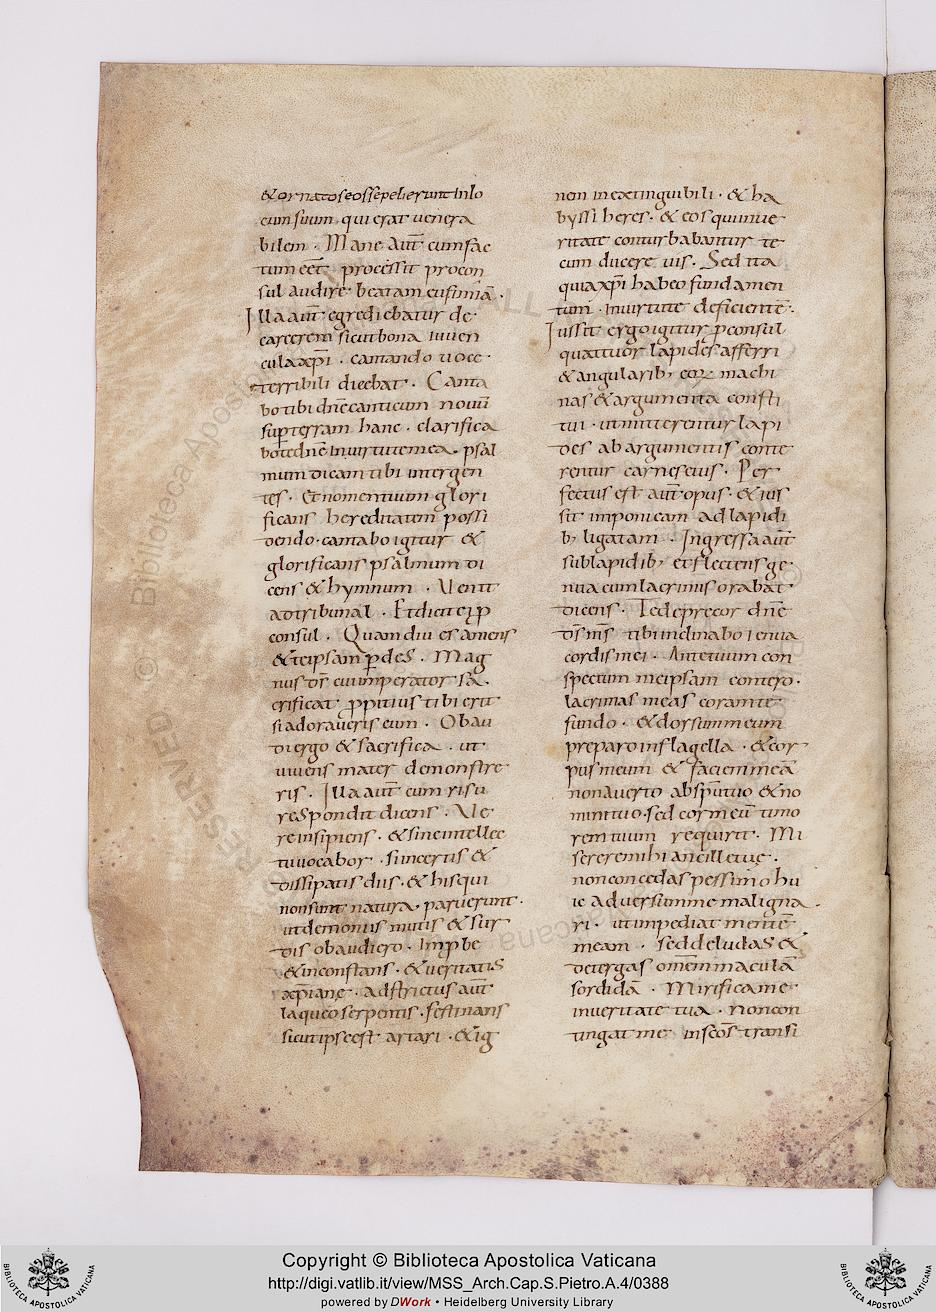 & ornatos eos sepelierunt in lo
cum suum qui erat venera
bilem. Mane aut̄ cum fac
tum eēt processit procon
sul audire beatam eufimiā.
Illa aut̄ egrediebatur de
carcerem sicut bona iuven
cula xp̄i. cantando voce
terribili dicebat. Canta
bo tibi dn̄e canticum novū
sup terram hanc. clarifica
bo te dn̄e in virtute mea. psal
mum dicam tibi inter gen
tes. Et nomen tuum glori
ficans hereditatem possi
dendo. cantabo igitur &
glorificans psalmum di
cens & hymnum. Venit
ad tribunal. Et dicit ei p
consul. Quamdiu es amens
& te ipsam pdes. Mag
nus dr̄ cui imperator sa
crificat ppitius tibi erit
si adoraveris eum. Obau
di ergo & sacrifica. ut
vivens mater demonstre
ris. Illa aut̄ cum risu
respondit dicens. Ve
re insipiens. & sine intellec
tu vocabor. si incertis &
dissipatis diis. & his qui
non sunt natura. paruerunt.
ut demoniis mutis & sur
dis obaudiero. Impbe
& inconstans. & veritatis
xp̄iane. adstrictus aut̄
laqueo serpentis. festinans
sicut ipse est artari. & ig
nen inextinguibili. & ha
byssi heres. & eos qui in ve
ritate conturbabantur te
cum ducere vis. Sed ita
quia xp̄i habeo fundamen
tum. in virtute deficientē.
Iussit ergo igitur pconsul
quattuor lapides afferri
& angularib; eor machi
nas & argumenta consti
tui. ut mitterentur lapi
des ab argumentis conte
rentur carnes eius. Per
fectus est aut̄ opus. & ius
sit imponi eam ad lapidi
b; ligatam. Ingressa aut̄
sub lapidib; et flectens ge
nua cum lacrimis orabat
dicens. Te deprecor dn̄e
ds̄ ms̄ tibi inclinabo ienua
cordis mei. Ante tuum con
spectum me ipsam contero.
lacrimas meas coram te
fundo. & dorsum meum
preparo in flagella. & cor
pus meum & faciem meā
non averto ab sputuo & no
mini tuo. sed cor meū timo
rem tuum requirit. Mi
serere mihi ancille tue.
non concedas pessimo hu
ic adversum me maligna
ri. ut impediat mentē
meam. sed deludas &
detergas omēm maculā
sordidā. Mirifica me
in veritate tua. Non con
tingat me in scōs transi
Copyright © Biblioteca Apostolica Vaticana
http://digi.vatlib.it/view/MSS_Arch.Cap.S.Pietro.A.4/0388
powered by DWork • Heidelberg University Library